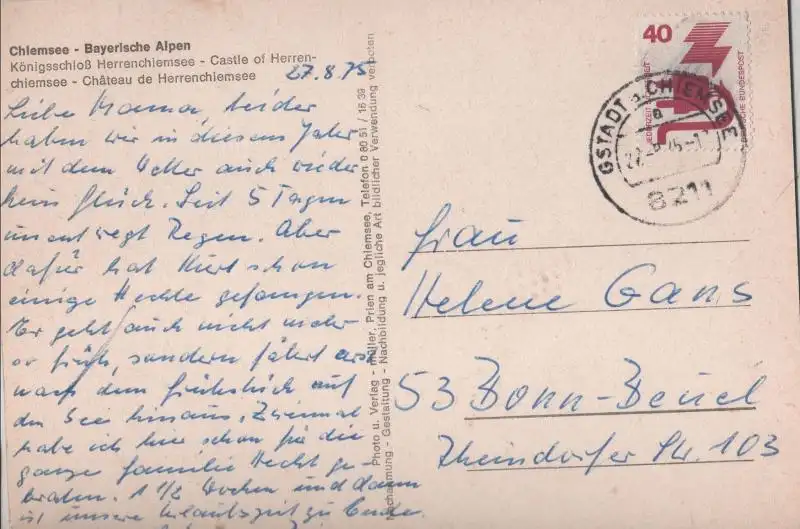 Chiemsee - Bayerische Alpen
Königsschloß Herrenchiemsee - Castle of Herren-
chiemsee - Château de Herrenchiemsee
27.8.75
Liebe Mama, leider
haben wir in diesem Jahr
mit dem Wetter auch wieder
kein Glück. Seit 5 Tagen
unentwegt Regen. Aber
dafür hat Kurt schon
einige Hechte gefangen.
Er geht auch nicht mehr
so früh, sondern fährt erst
nach dem Frühstück auf
den See hinaus. Zweimal
habe ich hier schon für die
ganze Familie Hecht ge-
braten. 1 1/2 Wochen und dann
ist unsere Urlaubszeit zu Ende.
Photo u. Verlag - müller, Prien am Chiemsee, Telefon 0 80 51 / 16 39
Nachahmung - Gestaltung - Nachbildung u. jegliche Art bildlicher Verwendung verboten
40
JEDERZEIT
DEUTSCHE BUNDESPOST
GSTADT a CHIEMSEE
a
8211
Frau
Helene Gans
53 Bonn-Beuel
Rheindorfer Str. 103